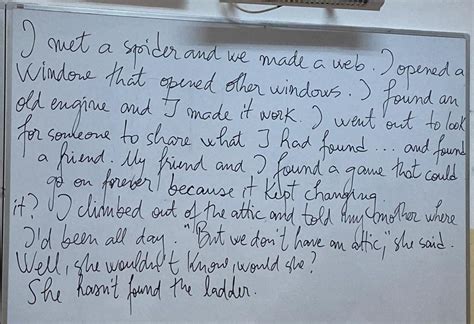 I met a spider and we made a web. I opened a
Window that opened other windows. I found an
old engine and I made it work. I went out to look
for someone to share what I had found ... and found
a friend. My friend and I found a game that could
go on forever, because it kept changing.
it? I climbed out of the attic and told my mother where
I'd been all day. "But we don't have an attic," she said.
Well, she wouldn't know, would she?
She hasn't found the ladder.